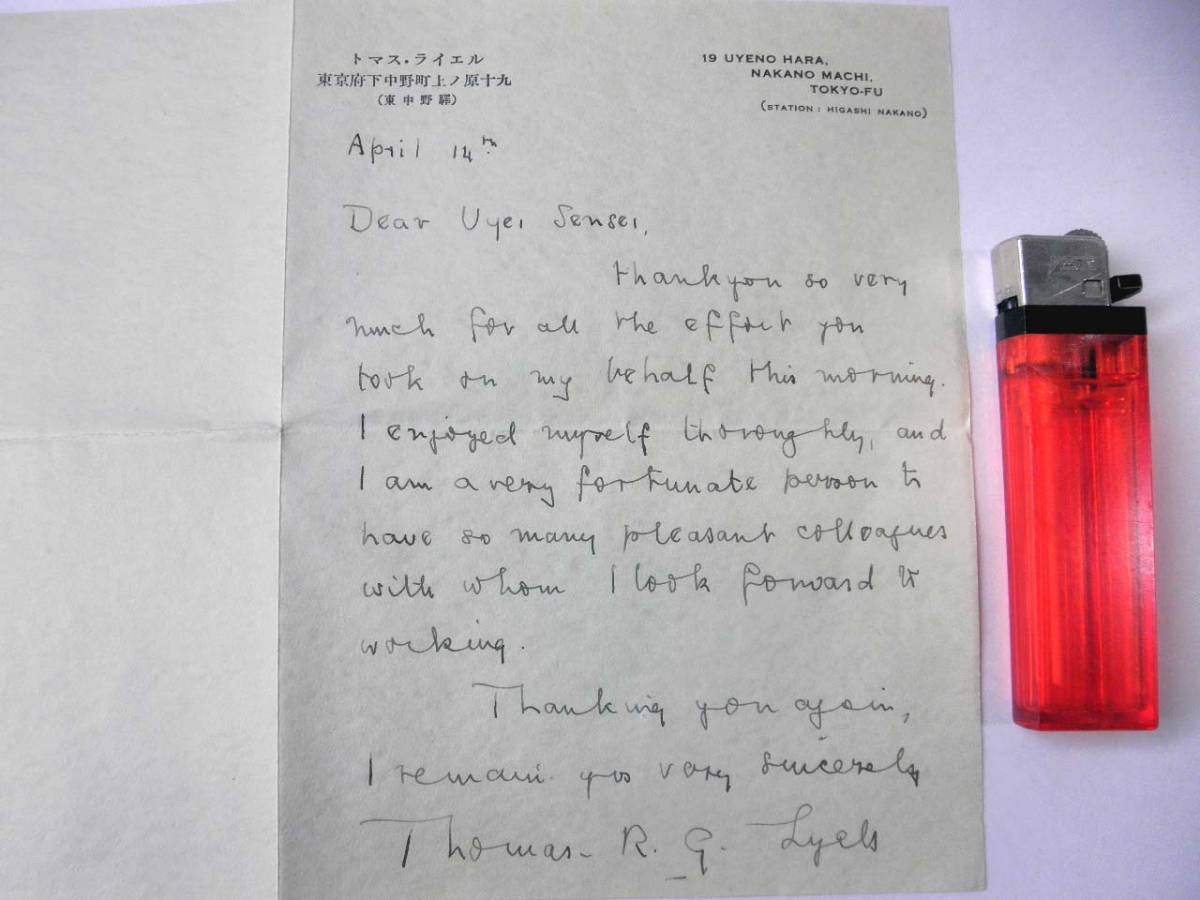 トマス・ライエル
東京府下中野町上ノ原十九
（東中野驛）
19 UYENO HARA,
NAKANO MACHI,
TOKYO-FU
(STATION : HIGASHI NAKANO)
April 14th
Dear Uyei Sensei,
Thankyou so very
much for all the effort you
took on my behalf this morning.
I enjoyed myself thoroughly, and
I am a very fortunate person to
have so many pleasant colleagues
with whom I look forward to
working.
Thanking you again,
I remain yrs very sincerely
Thomas R. G. Lyell